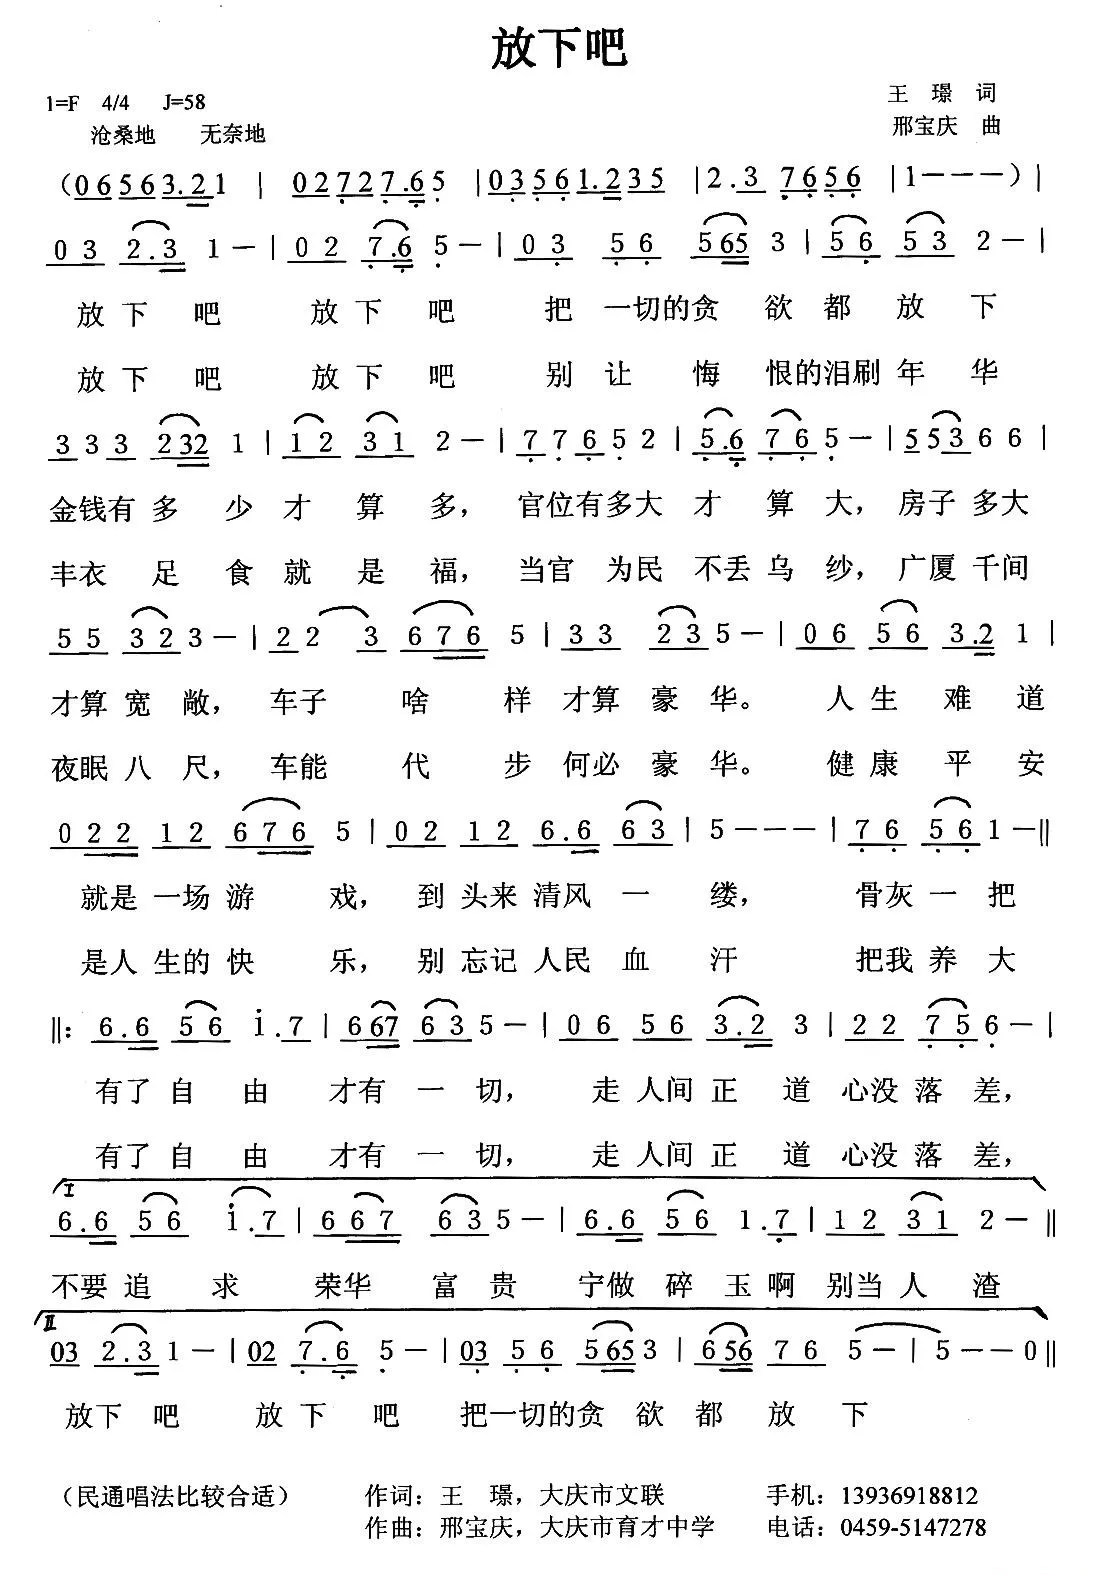 放下吧
1=F 4/4 J=58
王 璟 词
沧桑地 无奈地
邢宝庆 曲
（06563.21 | 02727.65 | 03561.235 | 2.3 7656 | 1---）|
03 2.3 1- | 02 7.6 5- | 03 56 565 3 | 56 53 2- |
放下吧 放下吧 把一切的贪欲都放下
放下吧 放下吧 别让悔恨的泪刷年华
333 232 1 | 12 31 2- | 77652 | 5.6 765- | 55366 |
金钱有多少才算多，官位有多大才算大，房子多大
丰衣足食就是福，当官为民不丢乌纱，广厦千间
55 323- | 22 3 676 5 | 33 235- | 06 56 3.2 1 |
才算宽敞，车子啥样才算豪华。人生难道
夜眠八尺，车能代步何必豪华。健康平安
022 12 676 5 | 02 12 6.6 63 | 5--- | 76 561-‖
就是一场游戏，到头来清风一缕，骨灰一把
是人生的快乐，别忘记人民血汗 把我养大
‖: 6.6 56 i.7 | 667 635- | 06 56 3.2 3 | 22 756- |
有了自由才有一切，走人间正道心没落差，
有了自由才有一切，走人间正道心没落差，
I
6.6 56 i.7 | 667 635- | 6.6 56 1.7 | 12 31 2-‖
不要追求荣华富贵宁做碎玉啊别当人渣
II
03 2.31- | 02 7.6 5- | 03 56 5653 | 656 76 5- | 5--0‖
放下吧 放下吧 把一切的贪欲都放下
（民通唱法比较合适） 作词：王 璟，大庆市文联 手机：13936918812
作曲：邢宝庆，大庆市育才中学 电话：0459-5147278